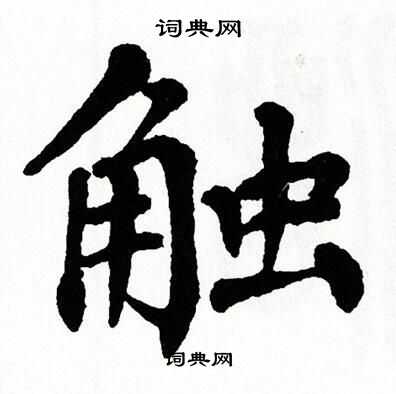 词典网
触
词典网